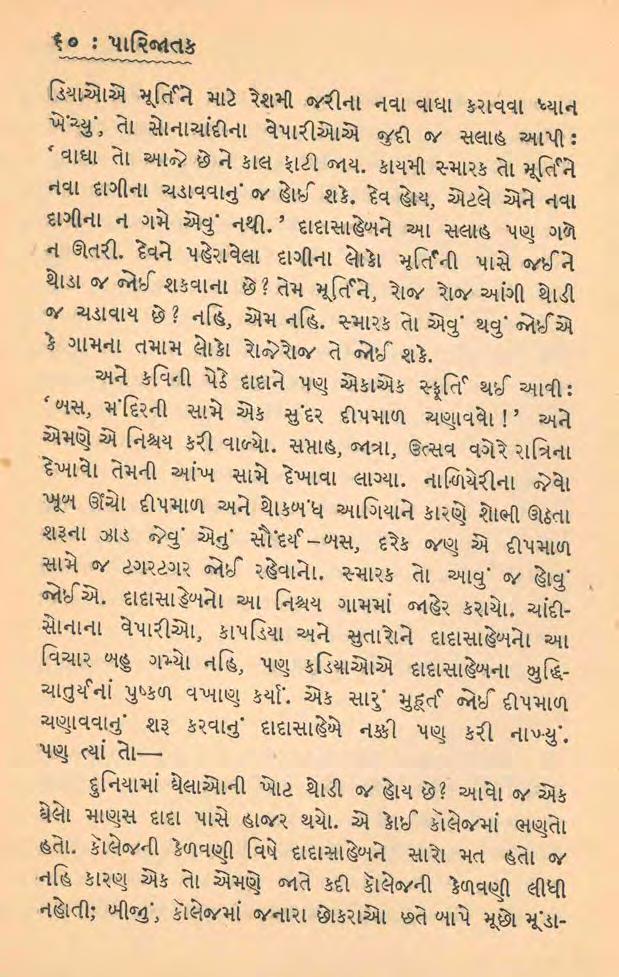 ૬૦ : પારિજાતક
ડિયાઓએ મૂર્તિને માટે રેશમી જરીના નવા વાઘા કરાવવા ધ્યાન
ખેંચ્યું, તો સોનાચાંદીના વેપારીઓએ જુદી જ સલાહ આપી :
‘ વાઘા તો આજે છે ને કાલ ફાટી જાય. કાયમી સ્મારક તો મૂર્તિને
નવા દાગીના ચડાવવાનું જ હોઈ શકે. દેવ હોય, એટલે એને નવા
દાગીના ન ગમે એવું નથી. ’ દાદાસાહેબને આ સલાહ પણ ગળે
ન ઊતરી. દેવને પહેરાવેલા દાગીના લોકો મૂર્તિની પાસે જઈને
થોડા જ જોઈ શકવાના છે ? તેમ મૂર્તિને, રોજ રોજ આંગી થોડી
જ ચડાવાય છે ? નહિ, એમ નહિ. સ્મારક તો એવું થવું જોઈએ
કે ગામના તમામ લોકો રોજેરોજ તે જોઈ શકે.
અને કવિની પેઠે દાદાને પણ એકાએક સ્ફૂર્તિ થઈ આવી :
‘ બસ, મંદિરની સામે એક સુંદર દીપમાળ ચણાવવો ! ’ અને
એમણે એ નિશ્ચય કરી વાળ્યો. સપ્તાહ, જાત્રા, ઉત્સવ વગેરે રાત્રિના
દેખાવો તેમની આંખ સામે દેખાવા લાગ્યા. નાળિયેરીના જેવો
ખૂબ ઊંચો દીપમાળ અને થોકબંધ આગિયાને કારણે શોભી ઊઠતા
શરૂના ઝાડ જેવું એનું સૌંદર્ય – બસ, દરેક જણ એ દીપમાળ
સામે જ ટગરટગર જોઈ રહેવાનો. સ્મારક તો આવું જ હોવું
જોઈએ. દાદાસાહેબનો આ નિશ્ચય ગામમાં જાહેર કરાયો. ચાંદી-
સોનાના વેપારીઓ, કાપડિયા અને સુતારોને દાદાસાહેબનો આ
વિચાર બહુ ગમ્યો નહિ, પણ કડિયાઓએ દાદાસાહેબના બુદ્ધિ-
ચાતુર્યનાં પુષ્કળ વખાણ કર્યાં. એક સારું મુહૂર્ત જોઈ દીપમાળ
ચણાવવાનું શરૂ કરવાનું દાદાસાહેબે નક્કી પણ કરી નાખ્યું.
પણ ત્યાં તો—
દુનિયામાં ઘેલાઓની ખોટ થોડી જ હોય છે ? આવો જ એક
ઘેલો માણસ દાદા પાસે હાજર થયો. એ કોઈ કૉલેજમાં ભણતો
હતો. કૉલેજની કેળવણી વિષે દાદાસાહેબને સારો મત હતો જ
નહિ કારણ એક તો એમણે જાતે કદી કૉલેજની કેળવણી લીધી
નહોતી; બીજું, કૉલેજમાં જનારા છોકરાઓ છતે બાપે મૂછો મૂંડા-